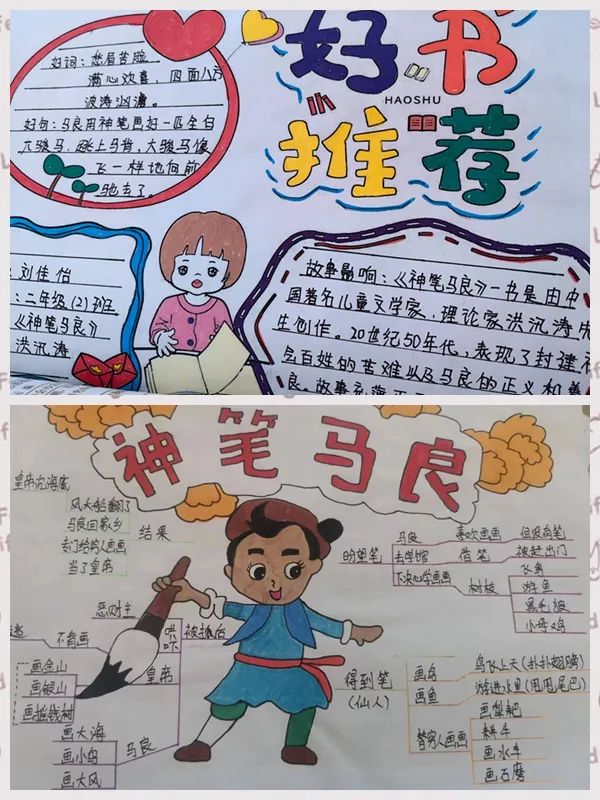 好词：愁眉苦脸
满心欢喜，四面八方
波涛汹涌。
好句：马良用神笔画好一匹金白
大骏马，跳上马背，大骏马像
飞一样地向前
驰去了。
好书
HAOSHU
推荐
：刘佳怡
：二年级(2)班
《神笔马良》
洪汛涛
故事影响：《神笔马良》一书是由中
国著名儿童文学家，理论家洪汛涛先
生创作。20世纪50年代，表现了封建社
百姓的苦难以及马良的正义和善
良。故事充满
神笔马良
皇帝沉海底
风大船翻了
马良回家乡
专门给穷人画画
当了皇帝
结果
恶财主
不肯画
哄
吓
被抓后
皇帝
画金山
画银山
画摇钱树
画大海
画小鸟
画大风
马良
盼望笔
马良
喜欢画画
但没有笔
去学馆
借笔
被赶出门
下决心学画画
树枝
飞鸟
游鱼
黑毛狼
小母鸡
得到笔
(仙人)
画鸟
鸟飞上天(扑扑翅膀)
画鱼
游进水里(甩甩尾巴)
替穷人画画
画犁耙
耕牛
画水车
画石磨